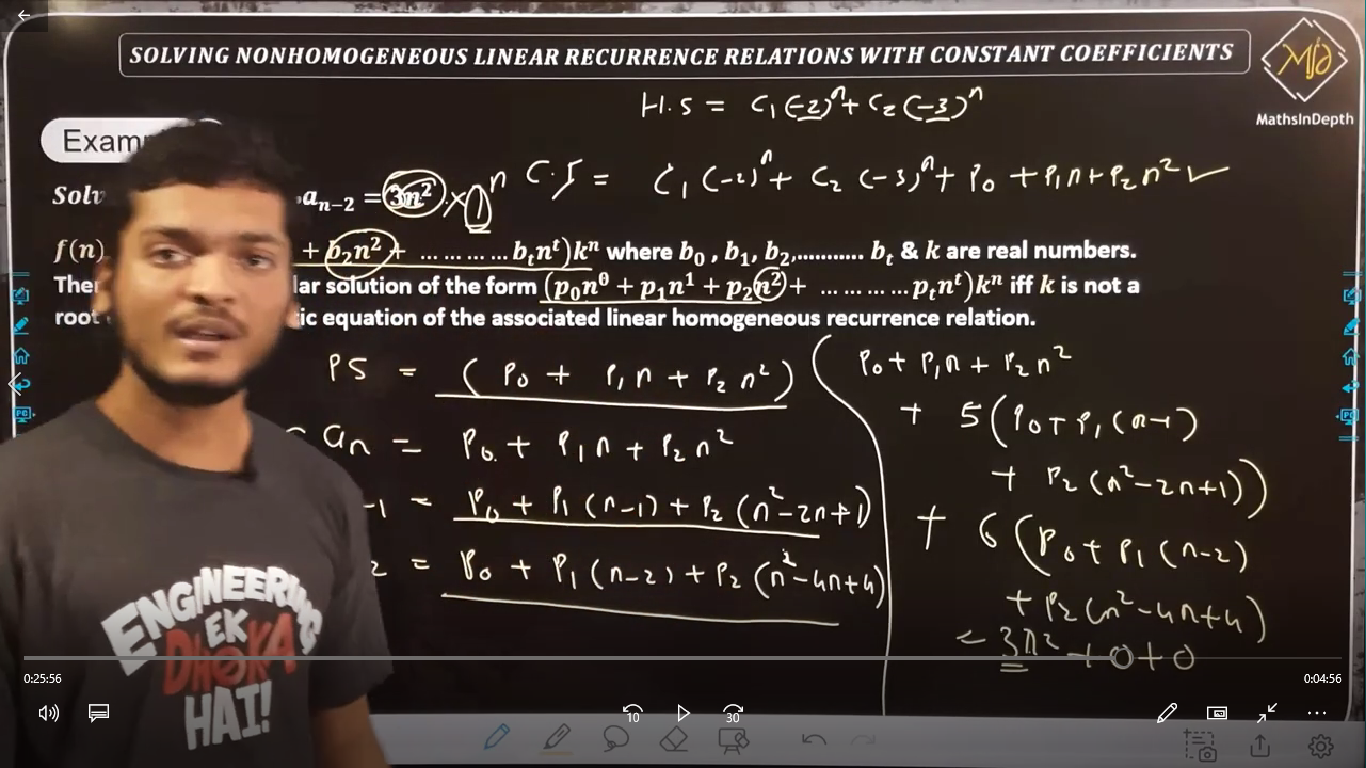 SOLVING NONHOMOGENEOUS LINEAR RECURRENCE RELATIONS WITH CONSTANT COEFFICIENTS
MathsInDepth
H.S = C₁(-2)ⁿ + C₂(-3)ⁿ
Exam
Solv aₙ₋₂ = 3n² × 1ⁿ
C.S = C₁(-2)ⁿ + C₂(-3)ⁿ + P₀ + P₁n + P₂n² ✓
f(n) + b₂n² + ... ... ... bₜnᵗ)kⁿ where b₀, b₁, b₂,............ bₜ & k are real numbers.
Ther lar solution of the form (p₀n⁰ + p₁n¹ + p₂n² + ... ... ... pₜnᵗ)kⁿ iff k is not a
root ic equation of the associated linear homogeneous recurrence relation.
PS = (P₀ + P₁n + P₂n²)
aₙ = P₀ + P₁n + P₂n²
-1 = P₀ + P₁(n-1) + P₂(n²-2n+1)
2 = P₀ + P₁(n-2) + P₂(n²-4n+4)
P₀ + P₁n + P₂n²
+ 5(P₀+P₁(n-1)
+ P₂(n²-2n+1))
+ 6(P₀+P₁(n-2)
+ P₂(n²-4n+4)
= 3n² + 0 + 0
ENGINEERING
EK
DHOKA
HAI!
0:25:56
0:04:56
10
30